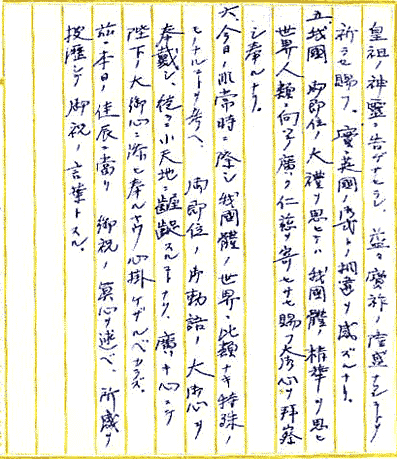 皇祖ノ神靈ニ告ゲサセラレ、益々寶祚ノ隆盛ナランコトヲ
祈ラセ賜フ。實ニ英國ノ儀式トノ相違ヲ感ズルナリ。
五、我國 御即位ノ大禮ヲ思ヒテハ我國體ノ精華ヲ思ヒ
世界人類ニ向ッテ廣ク仁慈ヲ寄セサセ賜フ大御心ヲ拜察
シ奉ルナリ。
六、今日ノ非常時ニ際シ我國體ノ世界ニ比類ナキ特殊ノ
モノナルコトヲ考ヘ 御即位ノ御勅語ノ大御心ヲ
奉戴シ、徒ラニ小天地ニ齷齪スルコトナク、廣ク
陛下ノ大御心ニ添ヒ奉ルヤウ心掛ケザルベカラズ。
茲ニ本日ノ佳辰ニ當リ 御祝ノ心ヲ述ベ、所感ヲ
披瀝シテ御祝ノ言葉トスル。